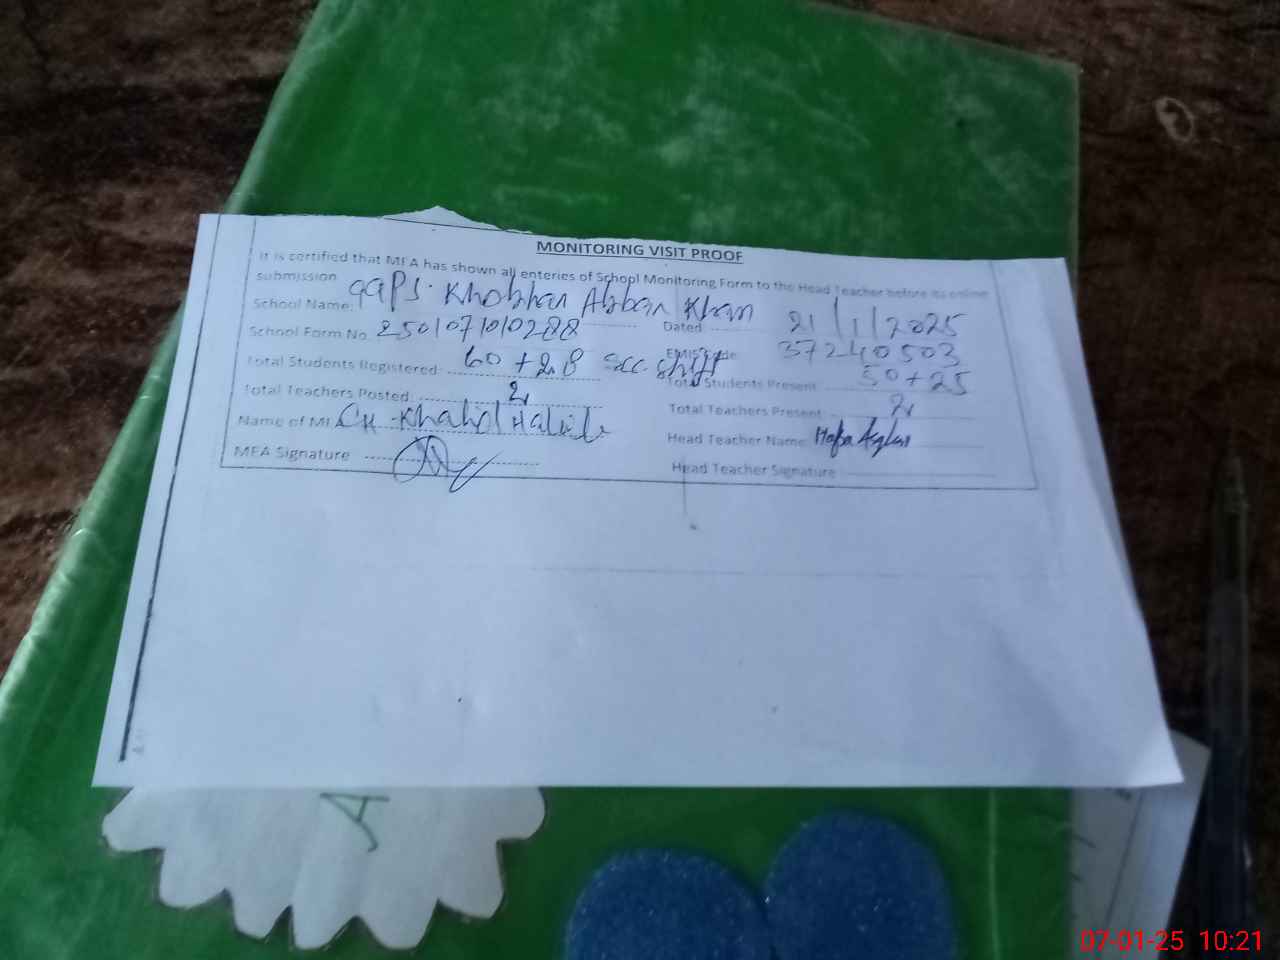 MONITORING VISIT PROOF
It is certified that MEA has shown all enteries of School Monitoring Form to the Head Teacher before its online
submission
School Name: GGPS. Khobhan Abban Khan
Dated 21/1/2025
School Form No. 250107010288
EMIS Code 37240503
Total Students Registered: 60 + 28 sec shift
Total Students Present 50 + 25
Total Teachers Posted: 2
Total Teachers Present 2
Name of MEA CH. Khalid Habib
Head Teacher Name Asghar
MEA Signature
Head Teacher Signature
A
07-01-25 10:21